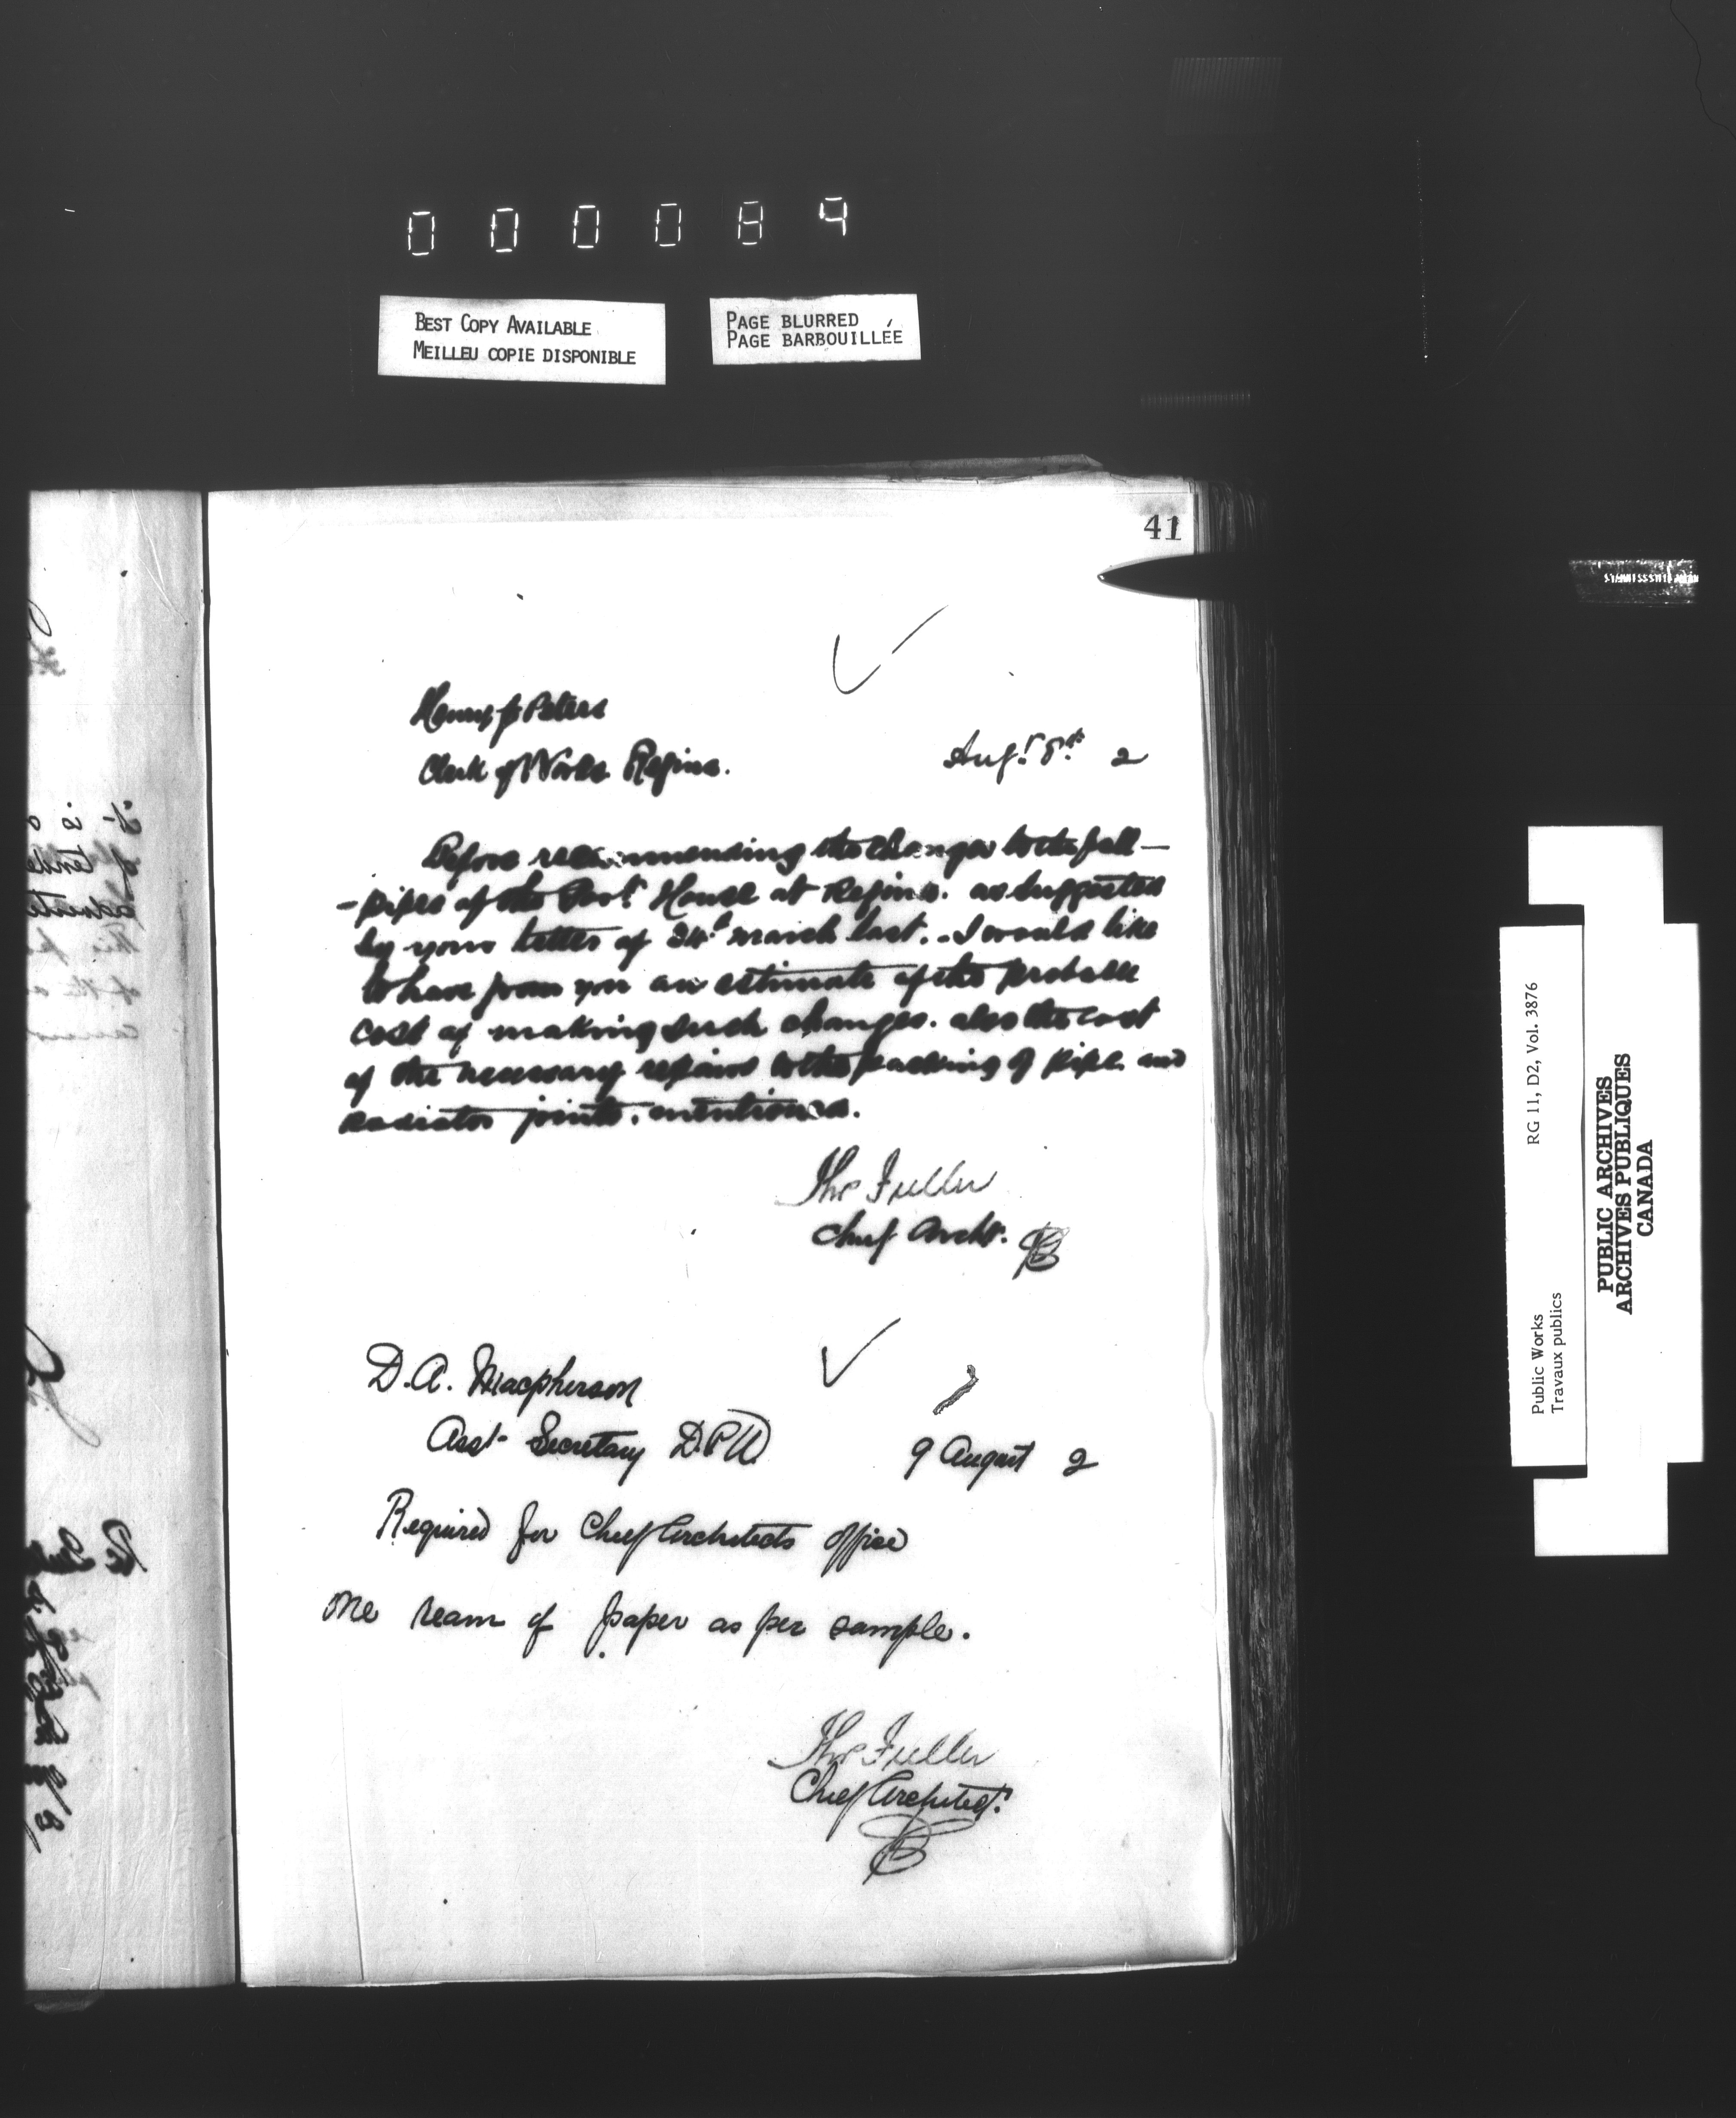 000084
BEST COPY AVAILABLE
MEILLEU COPIE DISPONIBLE
PAGE BLURRED
PAGE BARBOUILLÉE
41
Henry J. Peters
Clerk of Works Regina.
Augt. 8th 2
Before recommending the changes to the fall-
-pipes of the Govt. House at Regina. as suggested
by your letter of 24th March last. - I would like
to have from you an estimate of the probable
cost of making such changes. also the cost
of the necessary repairs to the packing of pipe and
radiator joints. mentioned.
Thos Fuller
Chief Archt.
D.A. Macpherson
Asst- Secretary D.P.W.
9 August 2
Required for Chief Architects office
one ream of paper as per sample.
Thos Fuller
Chief Architect.
Public Works
Travaux publics
RG 11, D2, Vol. 3876
PUBLIC ARCHIVES
ARCHIVES PUBLIQUES
CANADA